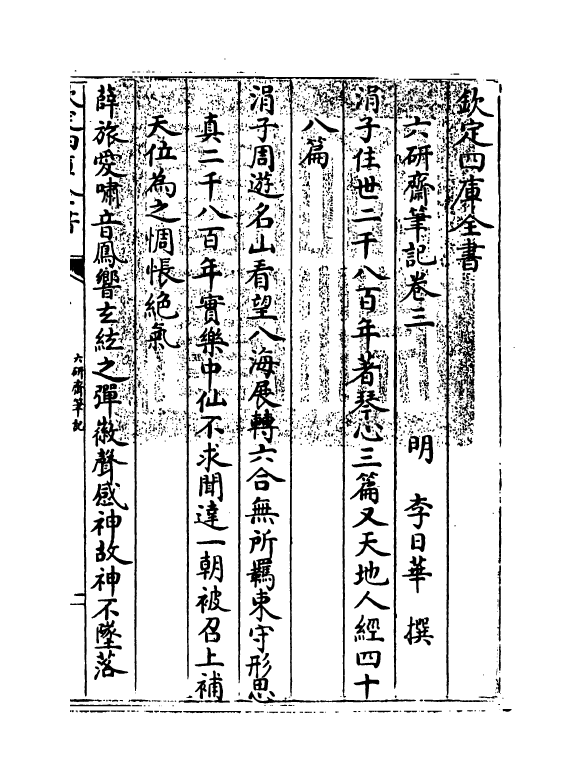 欽定四庫全書
六研齋筆記卷三
明 李日華 撰
涓子住世二千八百年著琴心三篇又天地人經四十
八篇
涓子周遊名山看望八海展轉六合無所羈束守形思
真二千八百年實樂中仙不求聞達一朝被召上補
天位為之惆悵絶氣
薛旅愛嘯音鳳響玄絃之彈徽聲感神故神不墜落
六研齋筆記